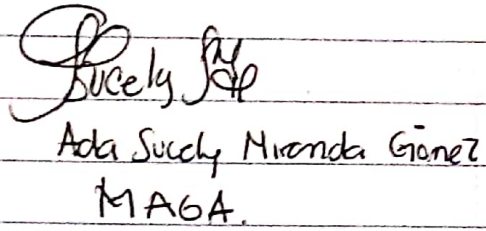 Sucely
Ada Sucely Miranda Gómez
MAGA.